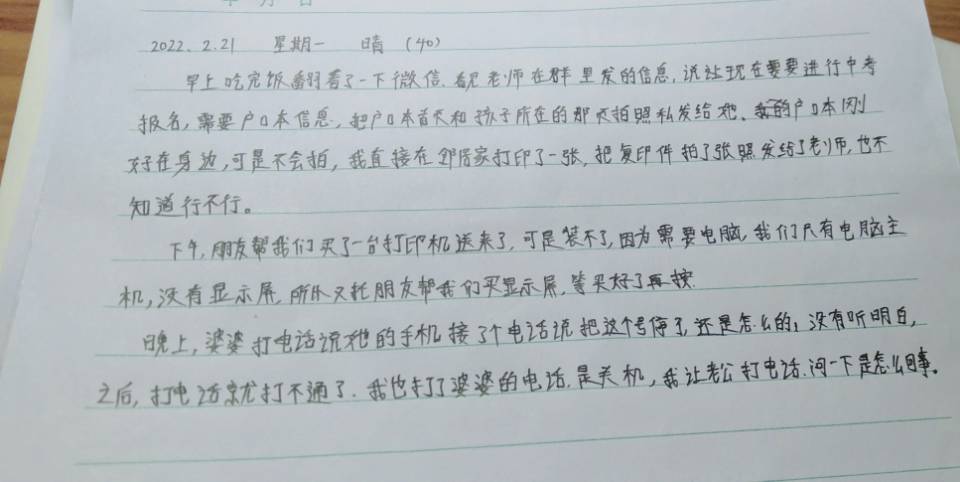 年 月 日
2022.2.21 星期一 晴 (40)
早上吃完饭翻看了一下微信,看见老师在群里发的信息,说让现在要进行中考
报名,需要户口本信息,把户口本首页和孩子所在的那页拍照私发给她、我的户口本刚
好在身边,可是不会拍,我直接在邻居家打印了一张,把复印件拍了张照发给了老师,也不
知道行不行。
下午,朋友帮我们买了一台打印机送来了,可是装不了,因为需要电脑,我们只有电脑主
机,没有显示屏,所以又托朋友帮我们买显示屏,等买好了再按.
晚上,婆婆打电话说她的手机接了个电话说把这个号停了,还是怎么的,没有听明白,
之后,打电话就打不通了.我也打了婆婆的电话,是关机,我让老公打电话.问一下是怎么回事。